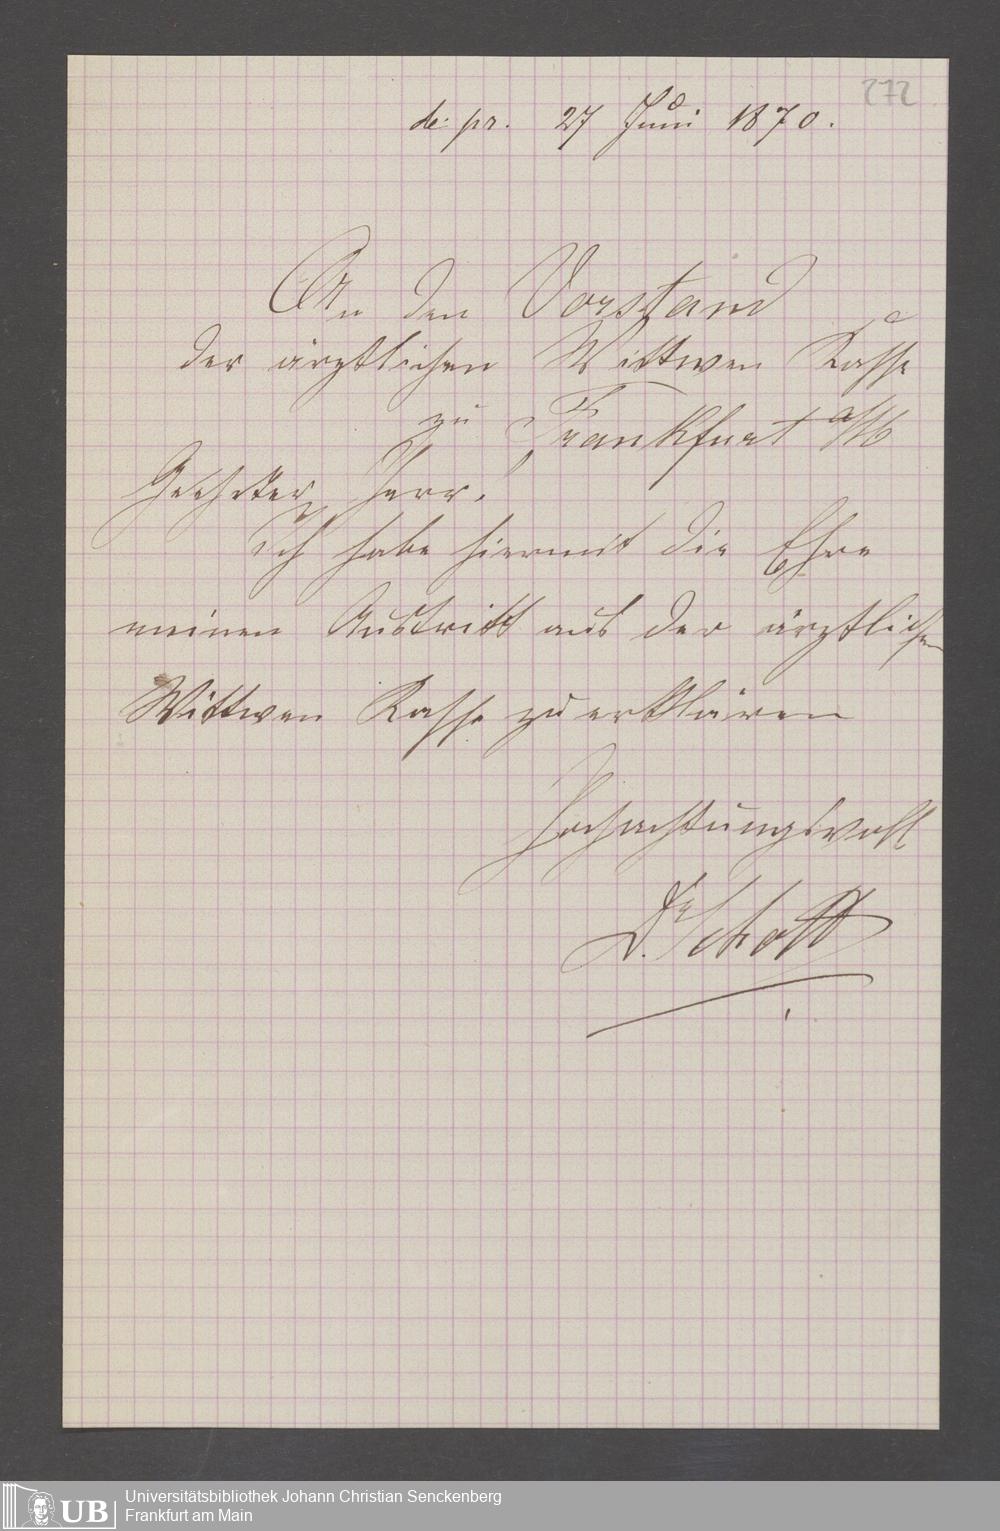 272
de. pr. 27 Juni 1870.
An den Vorstand
der ärztlichen Wittwen Kasse
zu Frankfurt a/M
Geehrter Herr.
Ich habe hiermit die Ehre
meinen Austritt aus der ärztlichen
Wittwen Kasse zu erklären
Hochachtungsvoll
Dr Schott
UB
Universitätsbibliothek Johann Christian Senckenberg
Frankfurt am Main